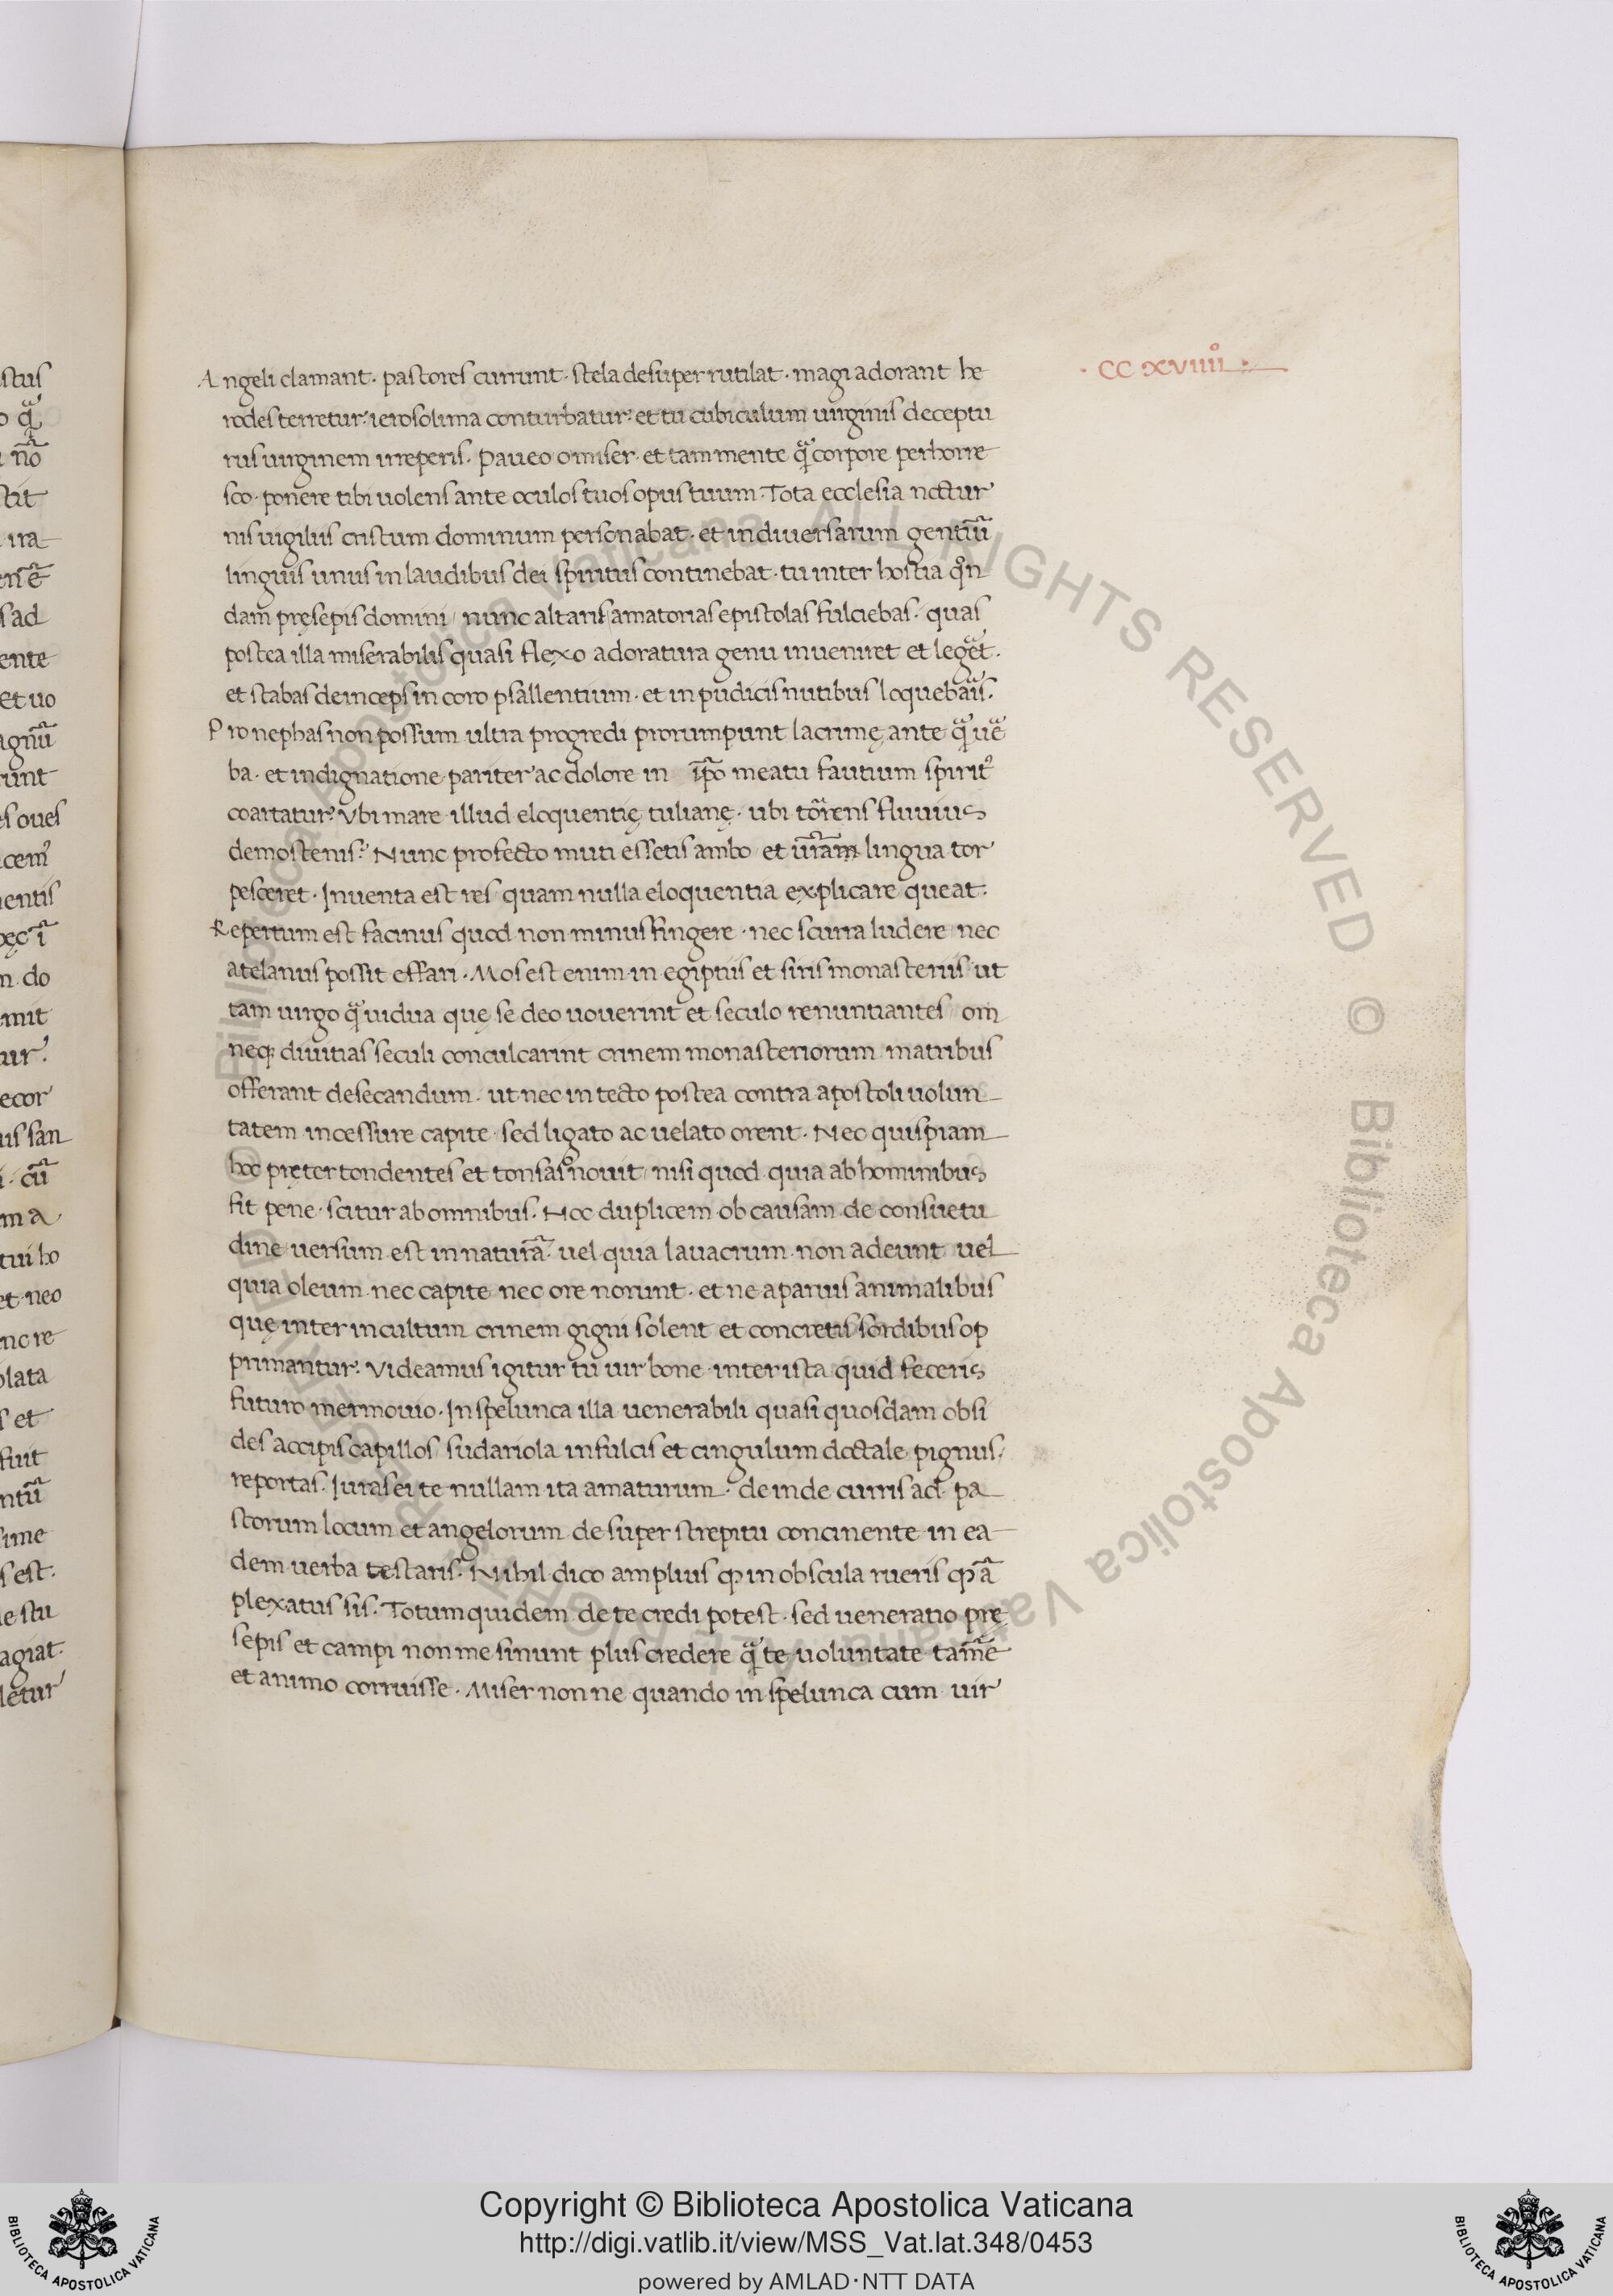 ·CC XVIIIIo·
Angeli clamant· pastores currunt· stela desuper rutilat· magi adorant he
rodes terretur: ierosolima conturbatur: et tu cubiculum uirginis deceptu
rus uirginem irreperis· Paueo o miser· et tam mente q̃ corpore perhorre
sco· ponere tibi uolens ante oculos tuos opus tuum· Tota ecclesia noctur
nis uigiliis cristum dominum personabat· et in diuersarum gentiū
linguis unus in laudibus dei spiritus continebat· tu inter hostia qn̊
dam̄ pręsepis domini, nunc altaris amatorias epistolas fulciebas· quas
postea illa miserabilis quasi flexo adoratura genu inueniret et leget̄·
et stabas deinceps in coro psallentium· et inpudicis nutibus loquebaīs·
Pro nephas non possum ultra progredi prorumpunt lacrimę ante q̃ uē
ba· et indignatione pariter ac dolore in ip̄o meatu fautium spirit᾽
coartatur: Vbi mare illud eloquentię tulianę· ubi tor̄rens fluuius
demostenis: Nunc profecto muti essetis ambo et ur̄am̄ lingua tor
pesceret· Inuenta est res quam nulla eloquentia explicare queat·
Repertum est facinus quod non minus fingere· nec scurra ludere nec
atelanus possit effari· Mos est enim in egiptiis et siris monasteriis ut
tam uirgo q̃ uidua quę se deo uouerint et seculo renuntiantes om
neq; diuitias seculi conculcarint crinem monasteriorum matribus
offerant desecandum· ut nec intecto postea contra apostoli uolun
tatem incessure capite· sed ligato ac uelato orent· Nec quispiam
hoc pręter tondentes et tonsas nouit, nisi quod quia ab hominibus
fit pene· scitur ab omnibus· Hoc duplicem ob causam de consuetu
dine uersum est in naturā uel quia lauacrum non adeunt uel
quia oleum nec capite nec ore norunt· et ne a paruis animalibus
quę inter incultum crinem gigni solent et concretis sordibus op
primantur· Videamus igitur tu uir bone inter ista quid feceris
futuro mermonio· In spelunca illa uenerabili quasi quosdam obsi
des accipis capillos sudariola infulcis et cingulum doctale pignus·
reportas· Iuras ei te nullam ita amaturum· deinde curris ad pa
storum locum et angelorum desuper strepitu concinente in ea
dem uerba testaris· Nihil dico amplius ꝙ in obscula rueris ꝙ ā
plexatus sis· Totum quidem de te credi potest· sed ueneratio prę
sepis et campi non me sinunt plus credere q̃ te uoluntate tam̄e
et animo corruisse· Miser non ne quando in spelunca cum uir
Copyright © Biblioteca Apostolica Vaticana
http://digi.vatlib.it/view/MSS_Vat.lat.348/0453
powered by AMLAD·NTT DATA